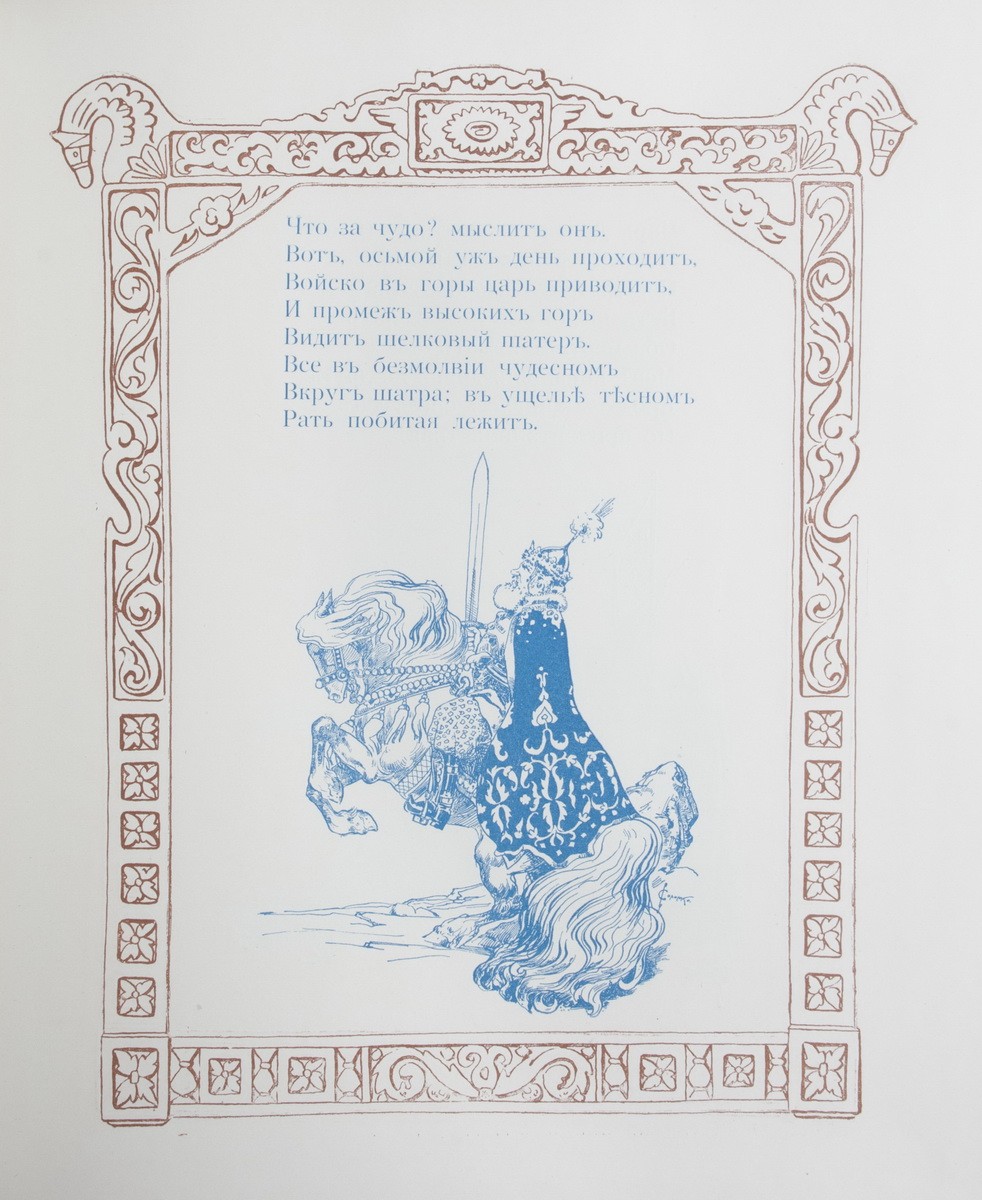 Что за чудо? мыслитъ онъ.
Вотъ, осьмой ужъ день проходитъ,
Войско въ горы царь приводитъ,
И промежъ высокихъ горъ
Видитъ шелковый шатеръ.
Все въ безмолвіи чудесномъ
Вкругъ шатра; въ ущельѣ тѣсномъ
Рать побитая лежитъ.